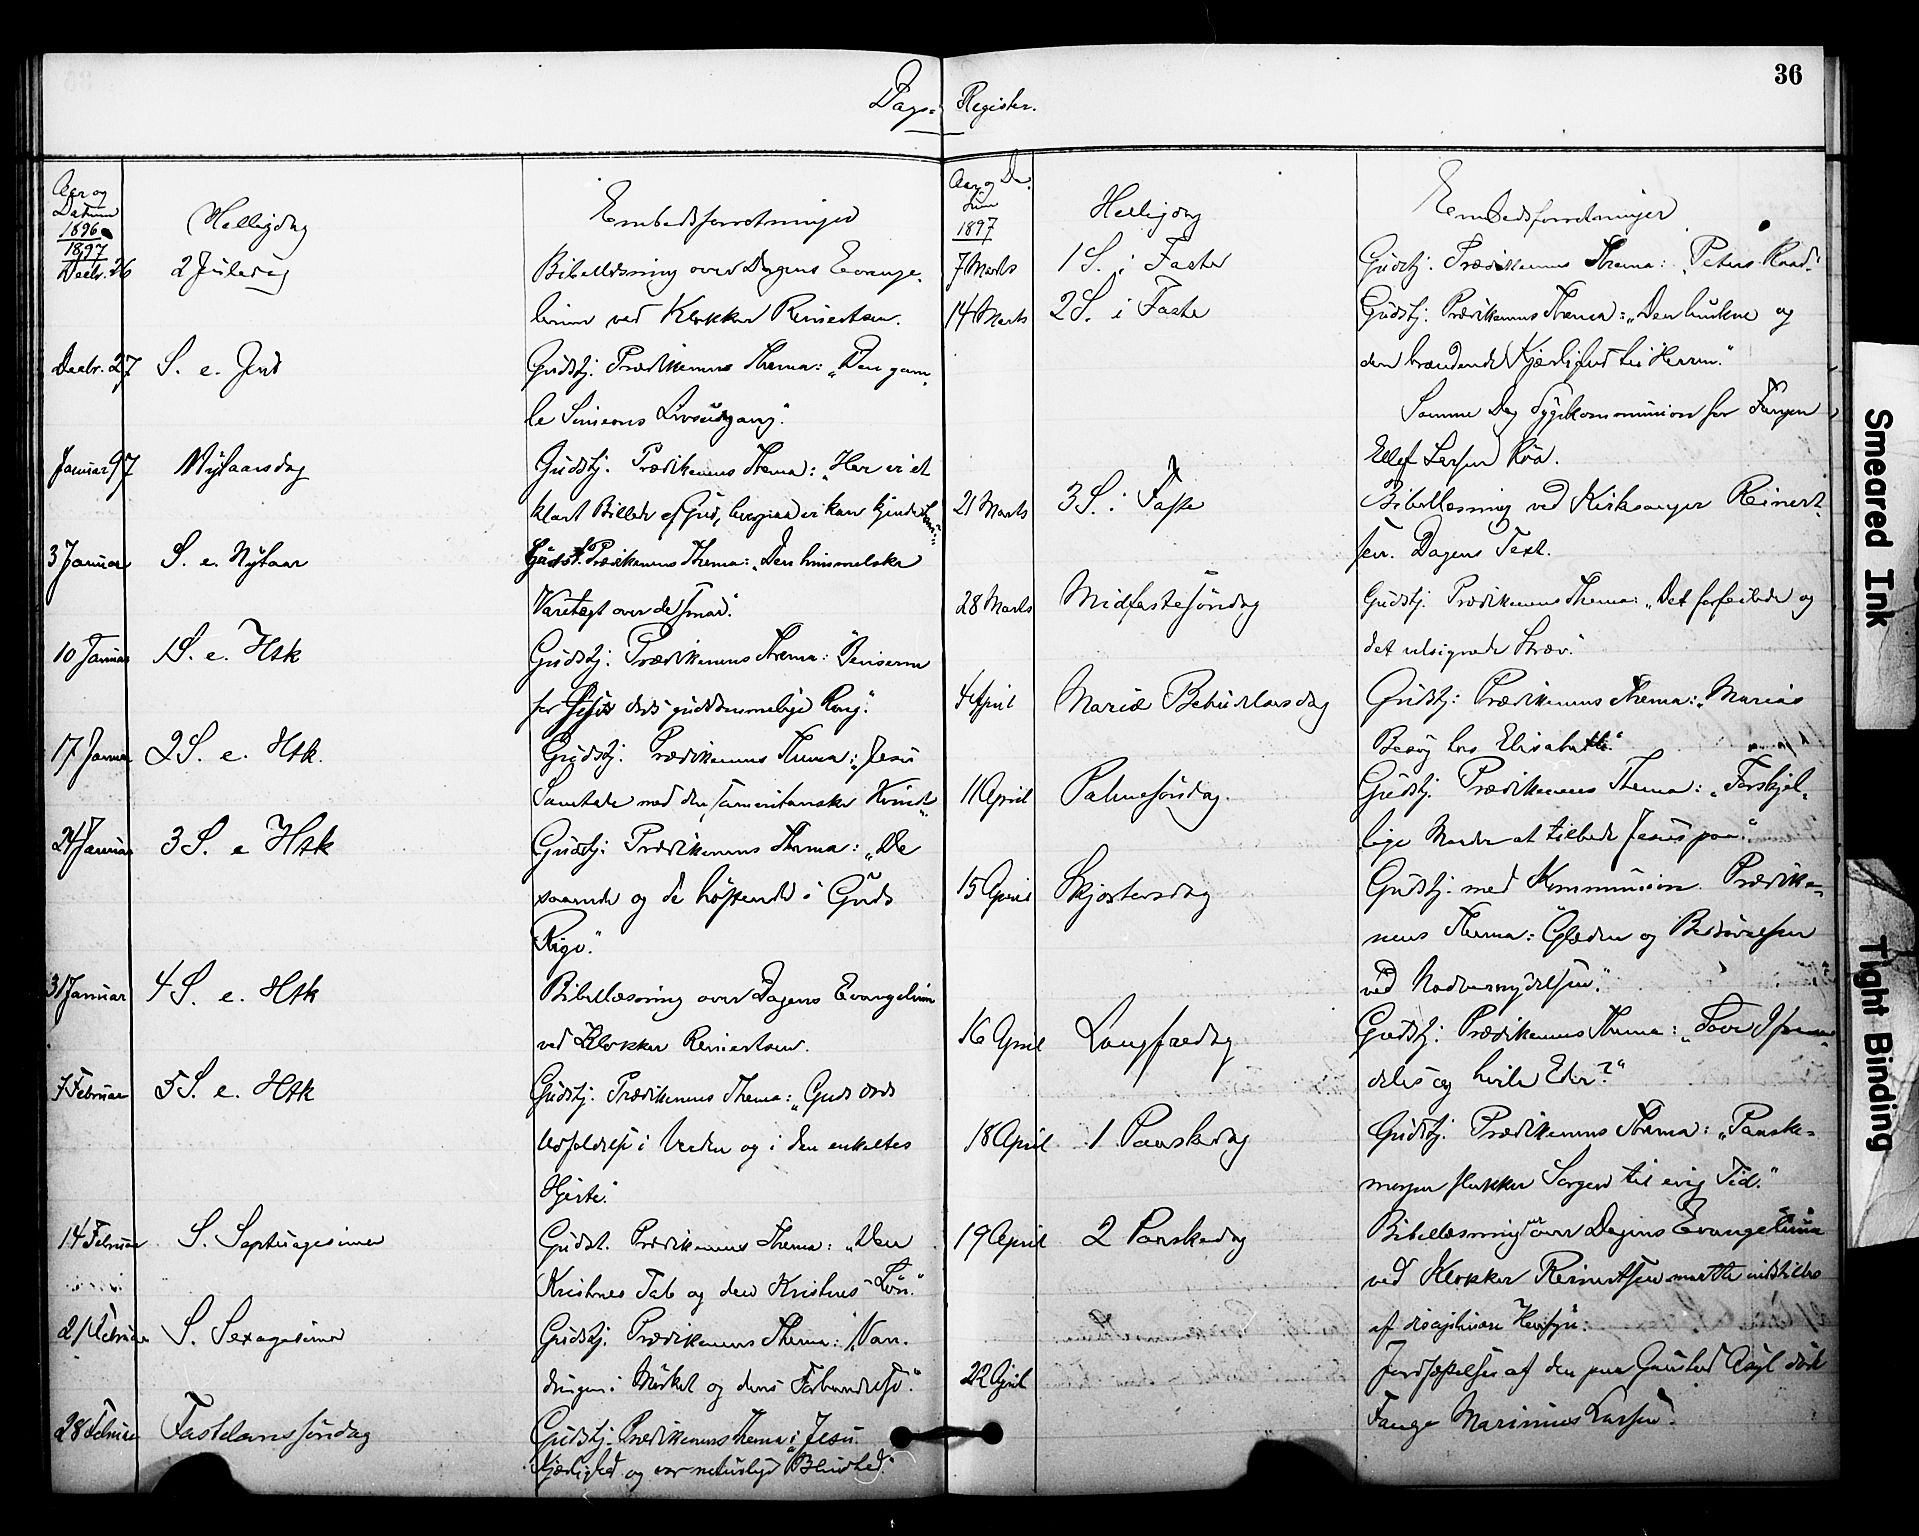 36
Dags- Register.
Aar og
Datum
1896
1897
Helligdag
Embedsforretninger
Decbr. 26 2 Juledag Bibellæsning over Dagens Evange-
lium ved Klokker Reinertsen.
Decbr. 27 S. e. Jul Gudstj. Prædikenens Thema: "Den gam-
le Simeons Livsudgang."
Januar 97 Nytaarsdag Gudstj. Prædikenens Thema: "Her er et
klart Billede af Gud, hvorpaa vi kan kjende
3 Januar S. e. Nytaar Gudst. Prædikenens Thema: "Den himmelske
Varetægt over de smaa."
10 Januar 1 S. e. H3k Gudstj. Prædikenens Thema: "Beviserne
for Jesu guddommelige
17 Januar 2 S. e. H3k. Gudstj. Prædikenens Thema: "Jesu
Samtale med den samaritanske Kvinde"
24 Januar 3 S. e H3k Gudstj: Prædikenens Thema: "De
saaende og de høstende i Guds
Rige."
31 Januar 4 S. e. H3k Bibellæsning over Dagens Evangelium
ved Klokker Reinertsen.
7 Februar 5 S. e. H3k Gudstj. Prædikenens Thema: "Guds Ords
i Verden og i den enkeltes
Hjerte."
14 Februar S. Septuagesima Gudst. Prædikenens Thema: "Den
Kristnes Tab og den Kristnes Løn."
21 Februar S. Sexagesima Gudstj. Prædikenens Thema: "Van-
dringen i Mørket og dens Forbandelse."
28 Februar Fastelavnssøndag Gudstj. Prædikenens Thema: "Jesu
Kjærlighed og vor naturlige Blindhed."
Aar og Da-
tum
1897
Helligdag
Embedsforretninger
7 Marts 1 S. i Faste Gudstj. Prædikenens Thema: "Peters Raad."
14 Marts 2 S. i Faste Gudstj. Prædikenens Thema: "Den lunkne og
den brændende Kjærlighed til Herren."
Samme Dag Sygekommunion for Fangen
Ellef Larsen Roa.
21 Marts 3 S. i Faste Bibellæsning ved Kirkesanger Reinert-
sen. Dagens Text.
28 Marts Midfastesøndag Gudstj. Prædikenens Thema: "Det forfeilede og
det velsignede Stræv.
4 April Mariæ Bebudelsesdag Gudstj: Prædikenens Thema: "Marias
Besøg hos Elisabeth."
11 April Palmesøndag. Gudstj. Prædikenens Thema: "Forskjel-
lige Maader at tilbede Jesus paa."
15 April Skjærtorsdag Gudstj. med Kommunion. Prædike-
nens Thema: "Glæden og Bedrøvelsen
ved Nadvernydelsen."
16 April Langfredag Gudstj. Prædikenens Thema: "Sove I frem-
deles og hvile Eder?"
18 April 1 Paaskedag Gudstj. Prædikenens Thema: "Paaske-
morgen slukker Sorgen til evig Tid."
19 April 2 Paaskedag Bibellæsning over Dagens Evangelium
ved Klokker Reinertsen maatte indstilles
af disciplinære Hensyn.
22 April Jordfæstelse af den paa Gaustad Asyl døde
Fange Marinius Larsen.
Smeared Ink
Tight Binding